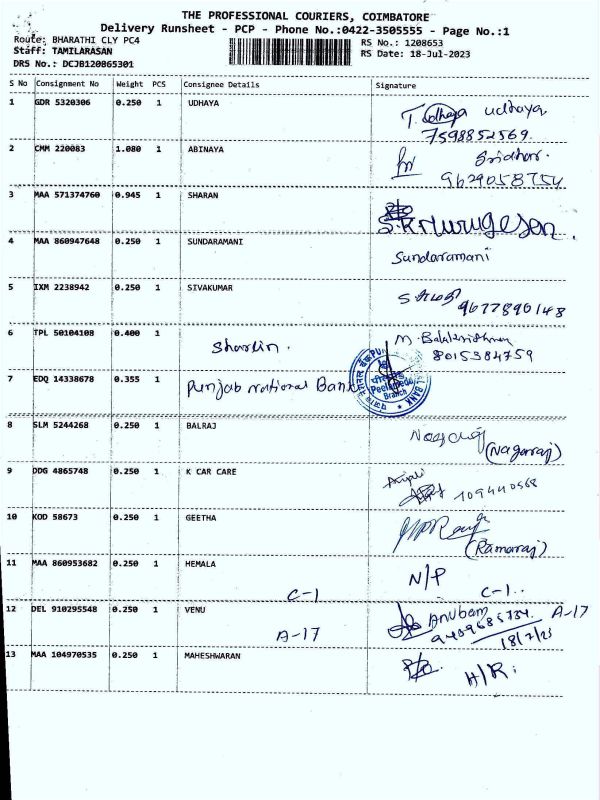 THE PROFESSIONAL COURIERS, COIMBATORE
Delivery Runsheet - PCP - Phone No.:0422-3505555 - Page No.:1
Route: BHARATHI CLY PC4
RS No.: 1208653
Staff: TAMILARASAN
RS Date: 18-Jul-2023
DRS No.: DCJB120865301
S No Consignment No Weight PCS Consignee Details Signature
1 GDR 5320306 0.250 1 UDHAYA T. Udhaya udhaya
7598852569.
2 CMM 220083 1.080 1 ABINAYA Sridhar.
9629058754
3 MAA 571374760 0.945 1 SHARAN S.K. Murugesan.
4 MAA 860947648 0.250 1 SUNDARAMANI Sundaramani
5 IXM 2238942 0.250 1 SIVAKUMAR 9677890148
6 TPL 50104108 0.400 1 Sharlin.
8015384759
7 EDQ 14338678 0.355 1 Punjab National Bank
Peelamedu
Branch
8 SLM 5244268 0.250 1 BALRAJ (Nagaraj)
9 DDG 4865748 0.250 1 K CAR CARE
10 KOD 58673 0.250 1 GEETHA
(Ramaraj)
11 MAA 860953682 0.250 1 HEMALA N/P
C-1 C-1..
12 DEL 910295548 0.250 1 VENU Anubam A-17
A-17 18/7/23
13 MAA 104970535 0.250 1 MAHESHWARAN H/R: